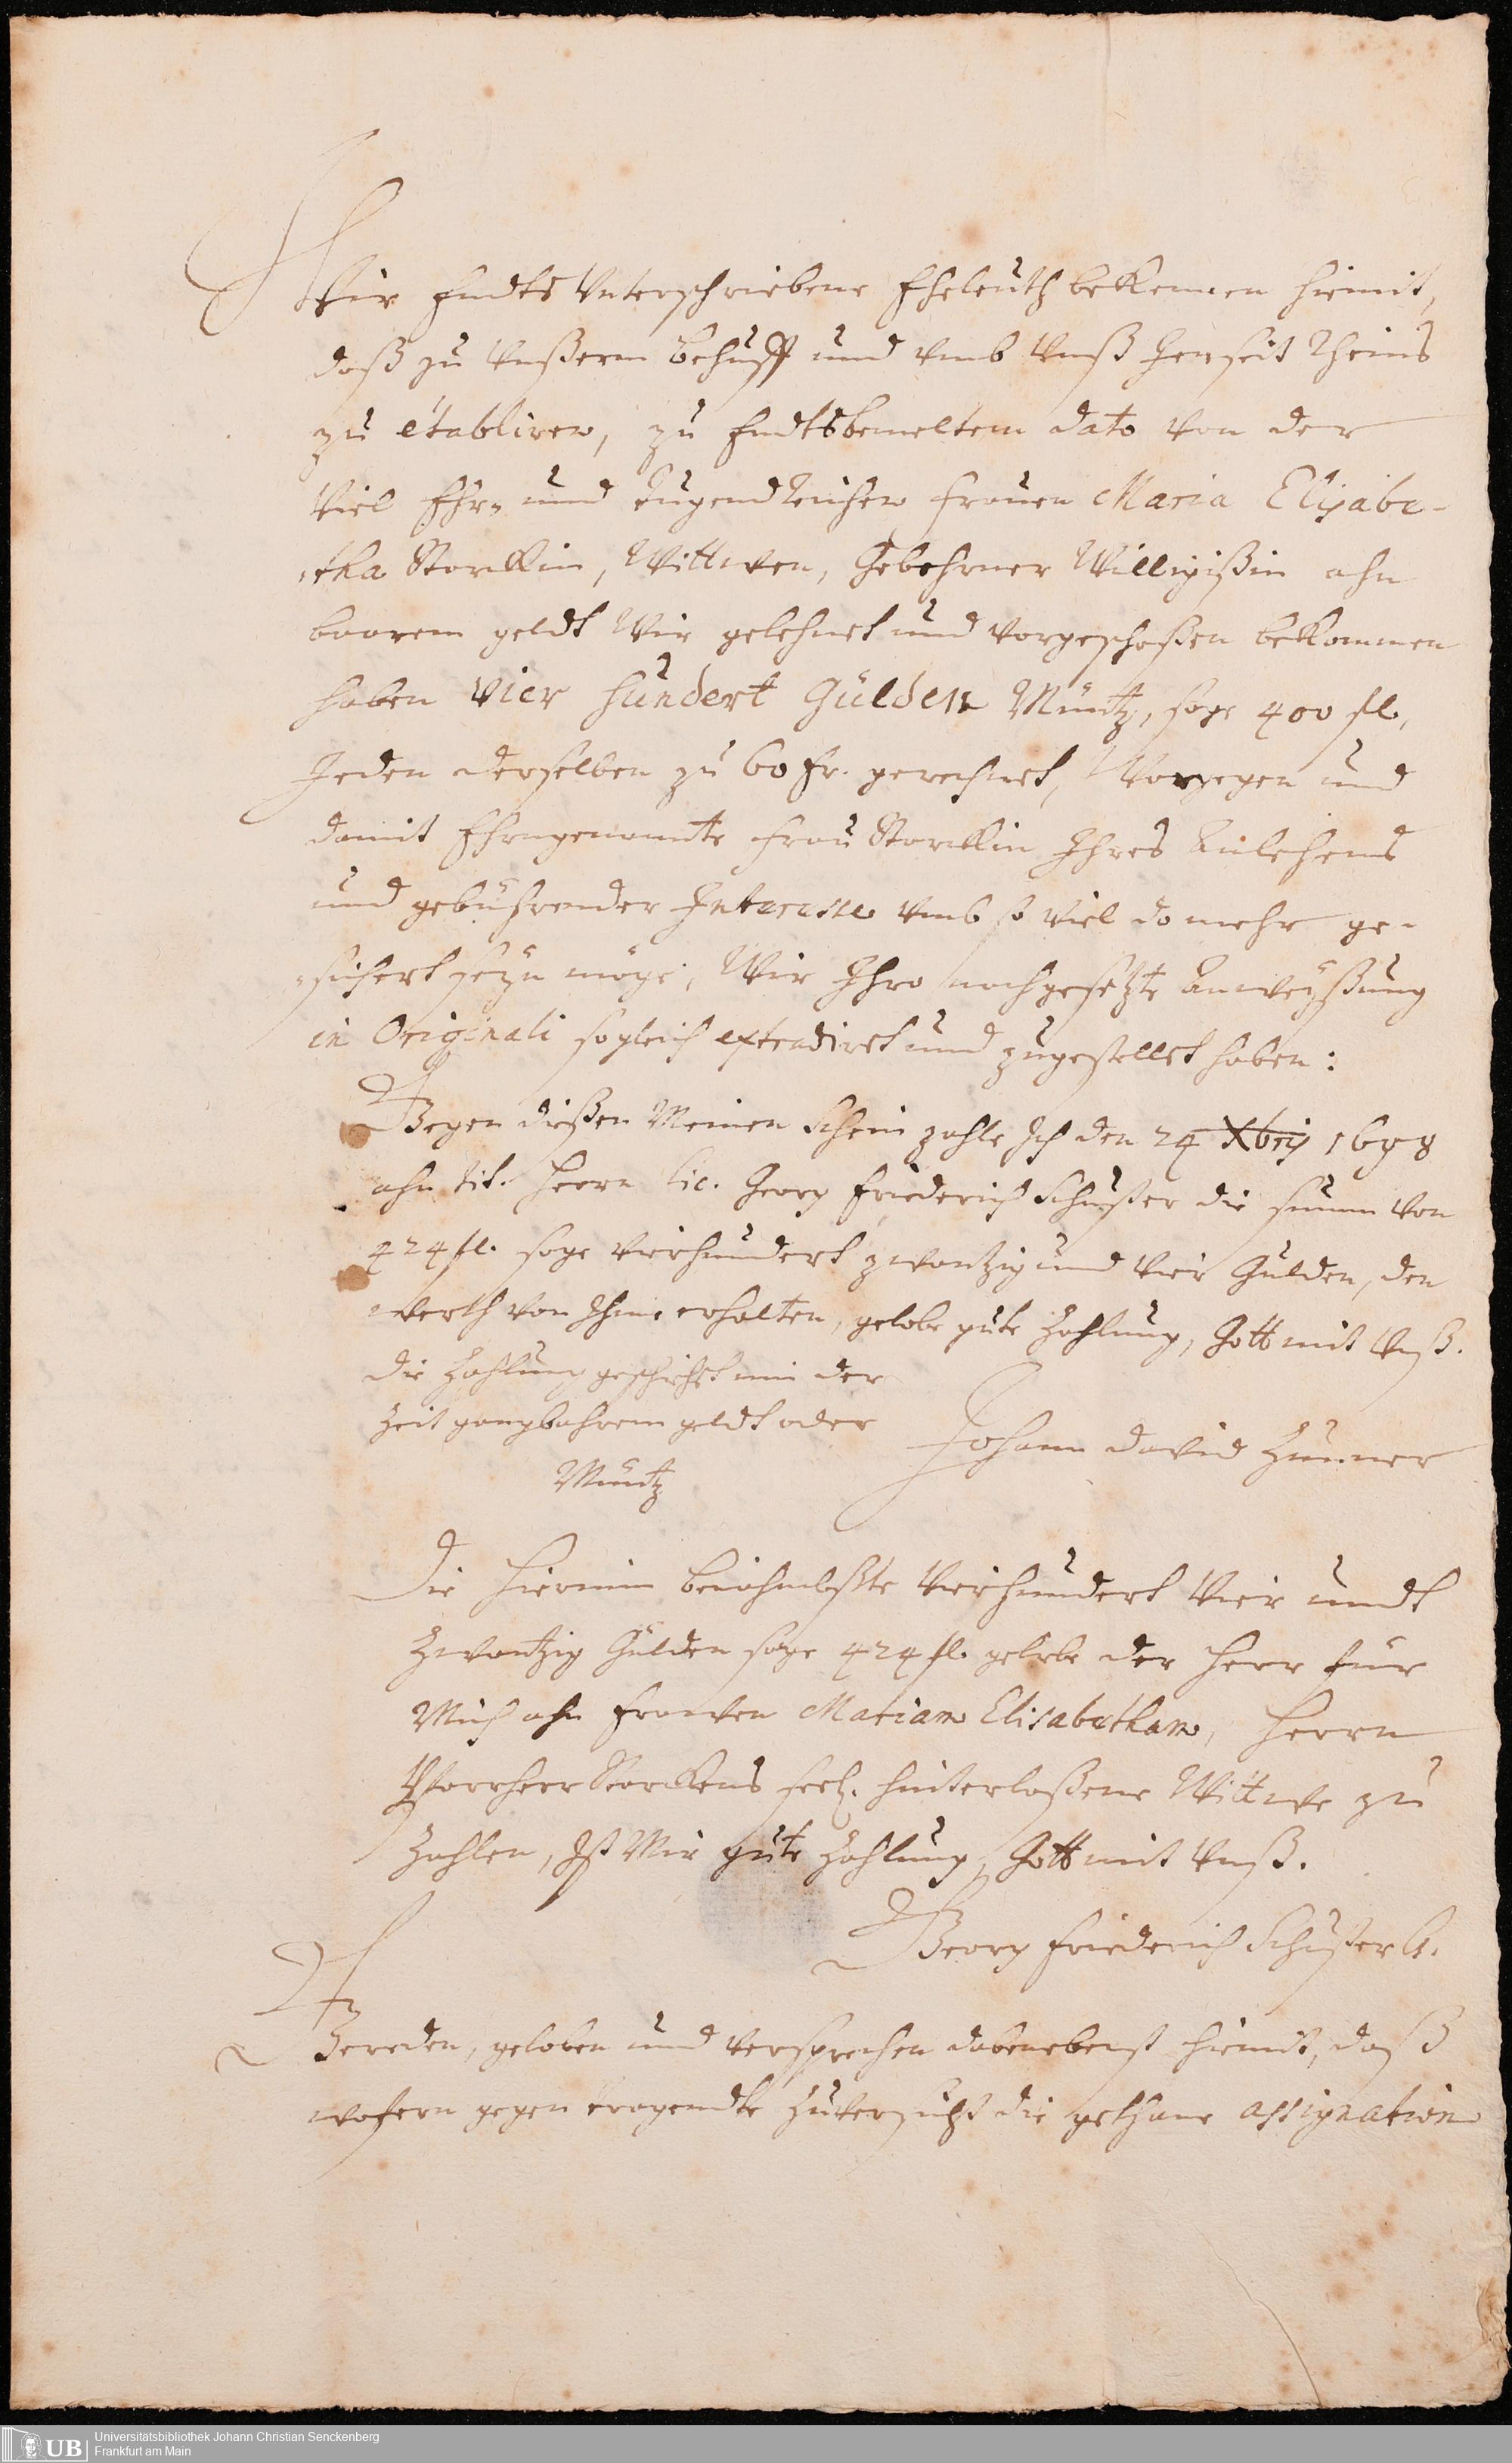 Wir Endts Unterschriebene Eheleuth bekennen hiemit,
daß zu Unßerem Behuff und umb Unß Jenseit Rheins
zu établiren, zu Endtsbemeltem dato von der
Viel Ehr- und Tugendreichen Frauen Maria Elisabe-
-tha Storckin, Wittwen, Gebohrner Willigißin ahn
baarem geldt Wir gelehnet und vorgeschoßen bekommen
haben vier hundert Gülden Müntz, sage 400 fl,
Jeden derselben zu 60 Xr. gerechnet, Worgegen und
damit Ehrngenamte Frau Storckin Ihres Anlehens
und gebührender Interesse umb so viel do mehr ge-
-sichert seyn möge, Wir Ihro nachgesetzte Anweißung
in Originali sogleich extradirt und zugestellet haben:
Gegen dießen Meinen Schein zahle Ich den 24 Xbris 1698
ahn tit. Herrn Lic. Georg Friederich Schuster die summ von
424 fl. sage vierhundert zwantzig und vier Gulden, den
werth von Ihme erhalten, gelobe gute Zahlung, Gott mit Unß.
die Zahlung geschicht inn der
Zeit gangbahrem geldt oder
Müntz
Johann David Zunner
Die hierinn Vierhundert Vier undt
Zwantzig Gülden sage 424 fl. gelobe der Herr für
Mich ahn Frawen Mariam Elisabetham, Herrn
Pfarrherr Storckens seel. hinterlaßene Wittwe zu
Zahlen, Ist Mir gute Zahlung, Gott mit Unß.
Georg Friederich Schuster L.
Bereden, geloben und versprechen dabenebenst hiemit, daß
wofern gegen tragendte Zuversicht die gethane assignation
Universitätsbibliothek Johann Christian Senckenberg
Frankfurt am Main
UB